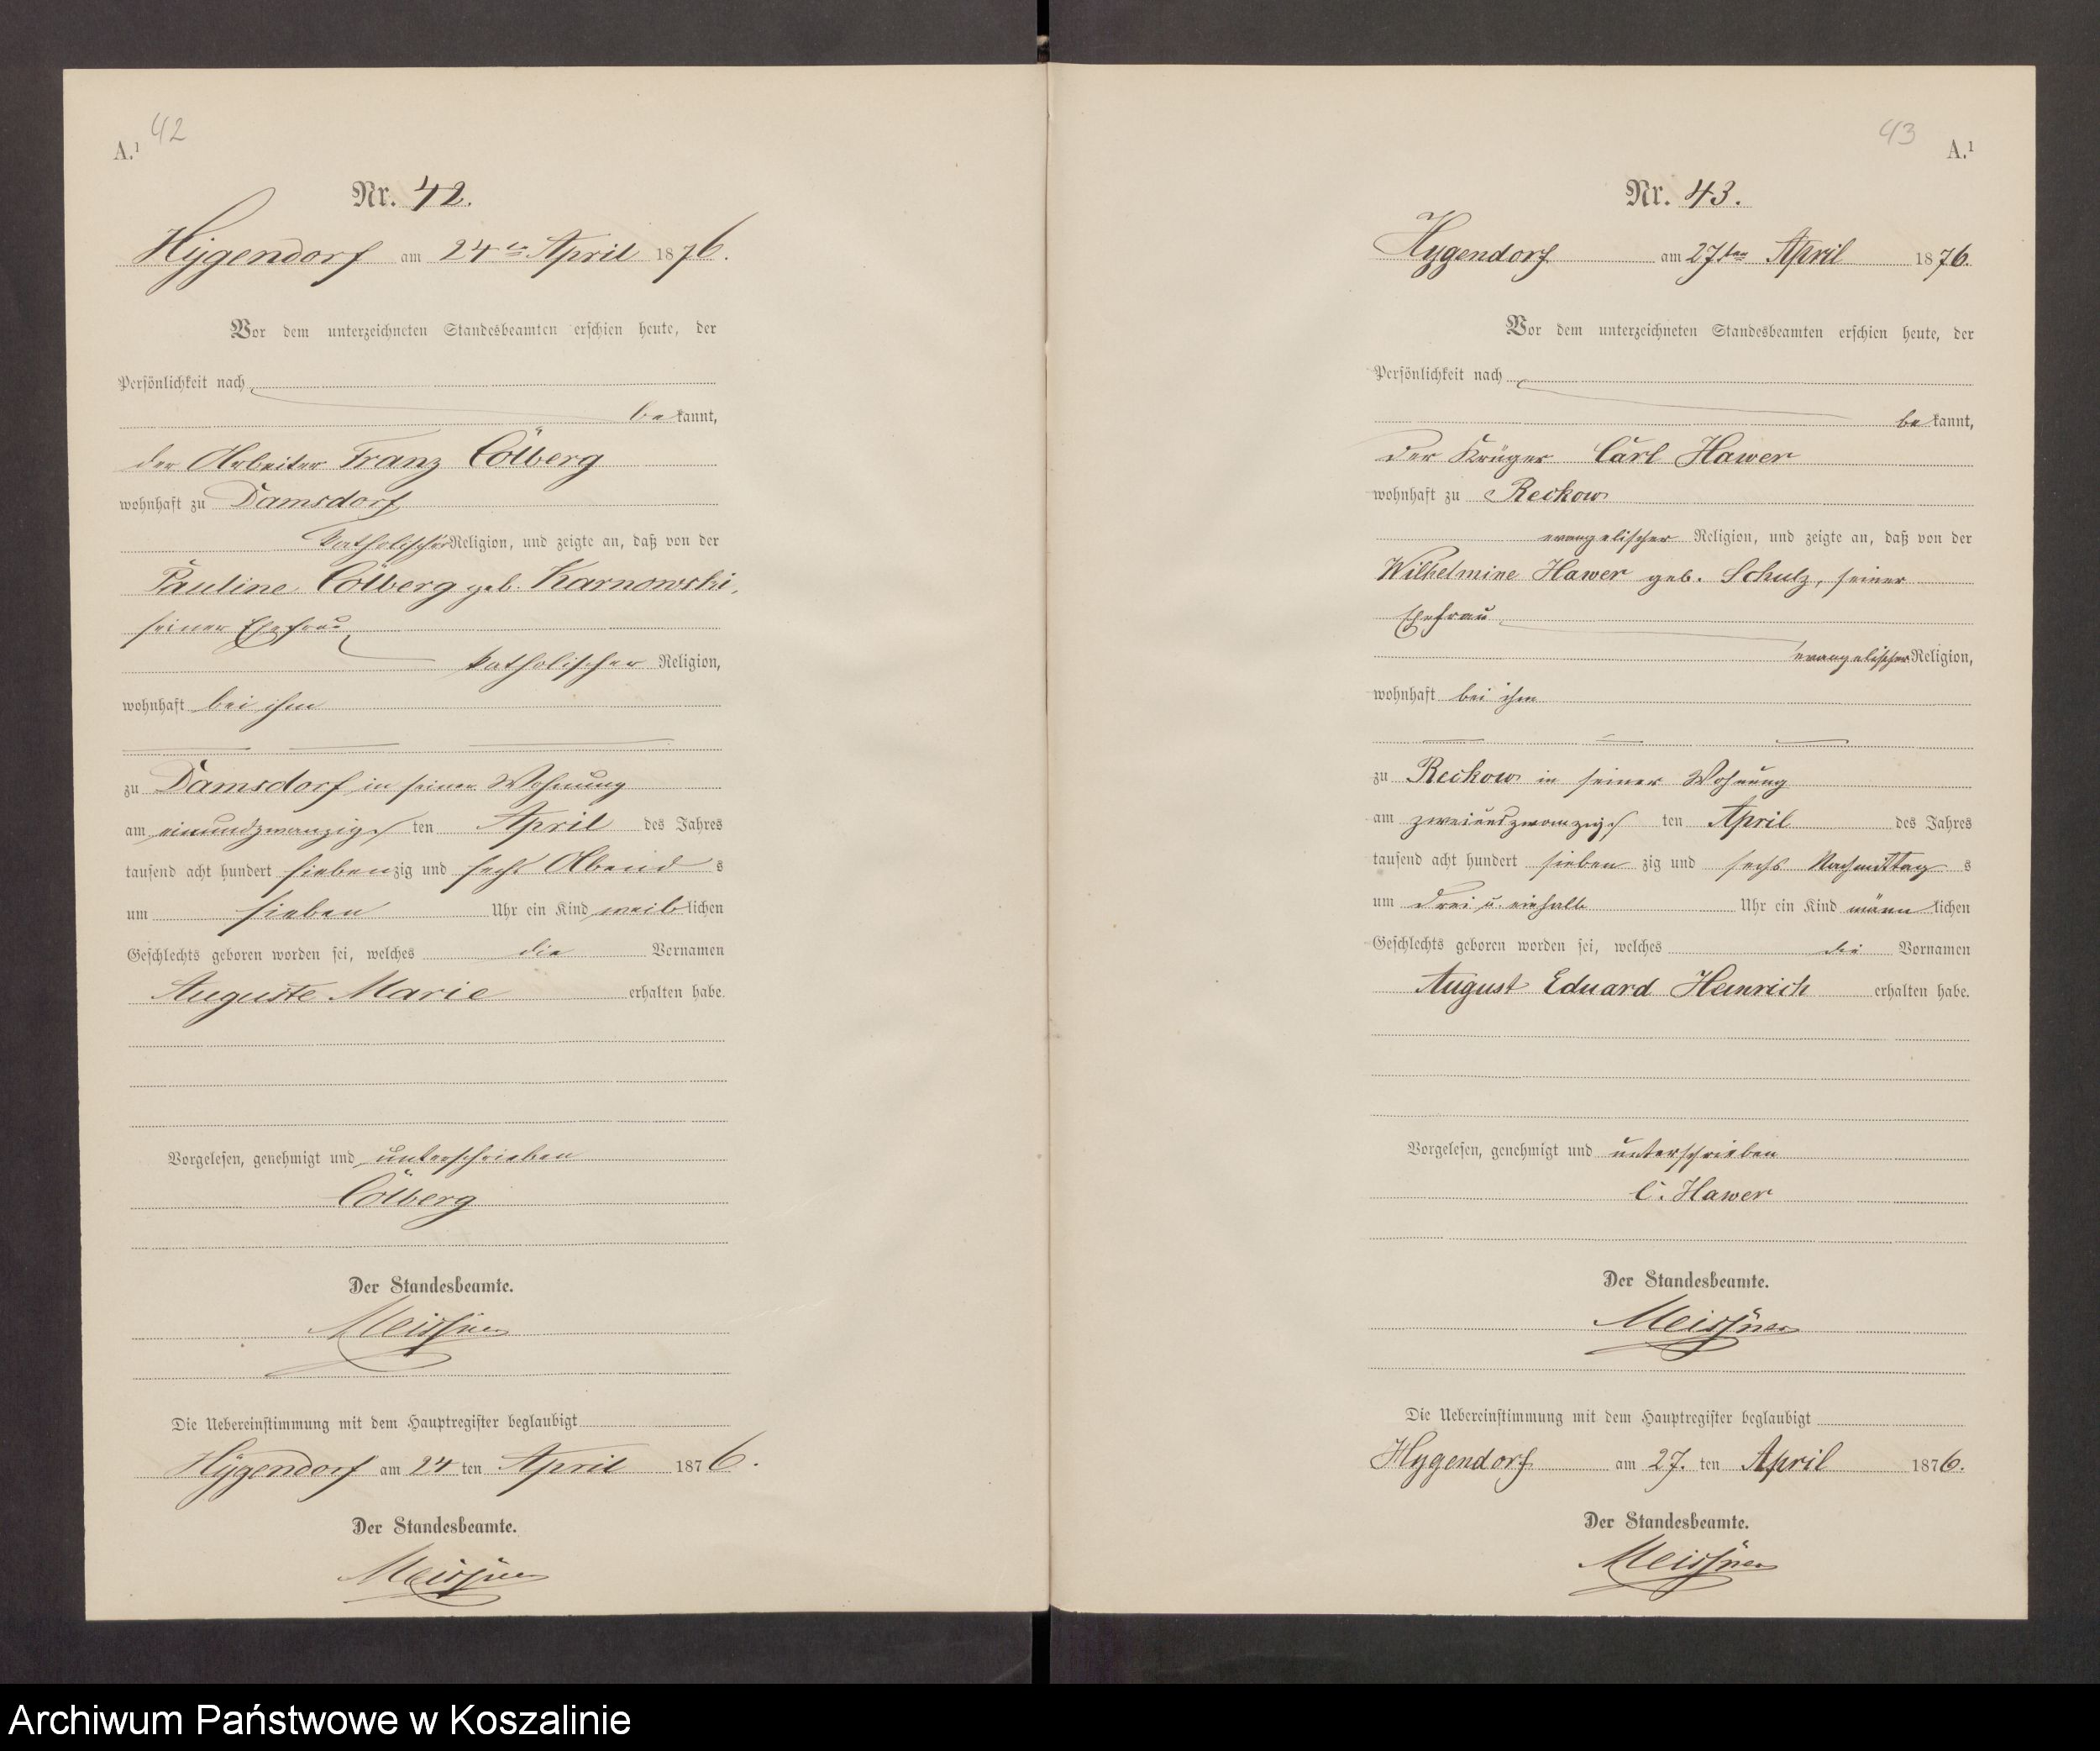 42
A.¹
Nr. 42.
Hygendorf am 24ten April 1876.
Vor dem unterzeichneten Standesbeamten erschien heute, der
Persönlichkeit nach
bekannt,
der Arbeiter Franz Cölberg
wohnhaft zu Damsdorf
katholischer Religion, und zeigte an, daß von der
Pauline Cölberg geb. Karnowski,
seiner Ehefrau
katholischer Religion,
wohnhaft bei ihm
zu Damsdorf in seiner Wohnung
am einundzwanzigsten April des Jahres
tausend acht hundert siebenzig und sechs Abends
um sieben Uhr ein Kind weiblichen
Geschlechts geboren worden sei, welches die Vornamen
Auguste Marie erhalten habe.
Vorgelesen, genehmigt und unterschrieben
Cölberg
Der Standesbeamte.
Meissner
Die Uebereinstimmung mit dem Hauptregister beglaubigt
Hygendorf am 24 ten April 1876.
Der Standesbeamte.
Meissner
43
A.¹
Nr. 43.
Hygendorf am 27ten April 1876.
Vor dem unterzeichneten Standesbeamten erschien heute, der
Persönlichkeit nach
bekannt,
der Krüger Carl Hawer
wohnhaft zu Reckow
evangelischer Religion, und zeigte an, daß von der
Wilhelmine Hawer geb. Schulz, seiner
Ehefrau
evangelischer Religion,
wohnhaft bei ihm
zu Reckow in seiner Wohnung
am zweiundzwanzigsten April des Jahres
tausend acht hundert siebenzig und sechs Nachmittags
um drei u. einhalb Uhr ein Kind männlichen
Geschlechts geboren worden sei, welches die Vornamen
August Eduard Heinrich erhalten habe.
Vorgelesen, genehmigt und unterschrieben
C. Hawer
Der Standesbeamte.
Meissner
Die Uebereinstimmung mit dem Hauptregister beglaubigt
Hygendorf am 27. ten April 1876.
Der Standesbeamte.
Meissner
Archiwum Państwowe w Koszalinie